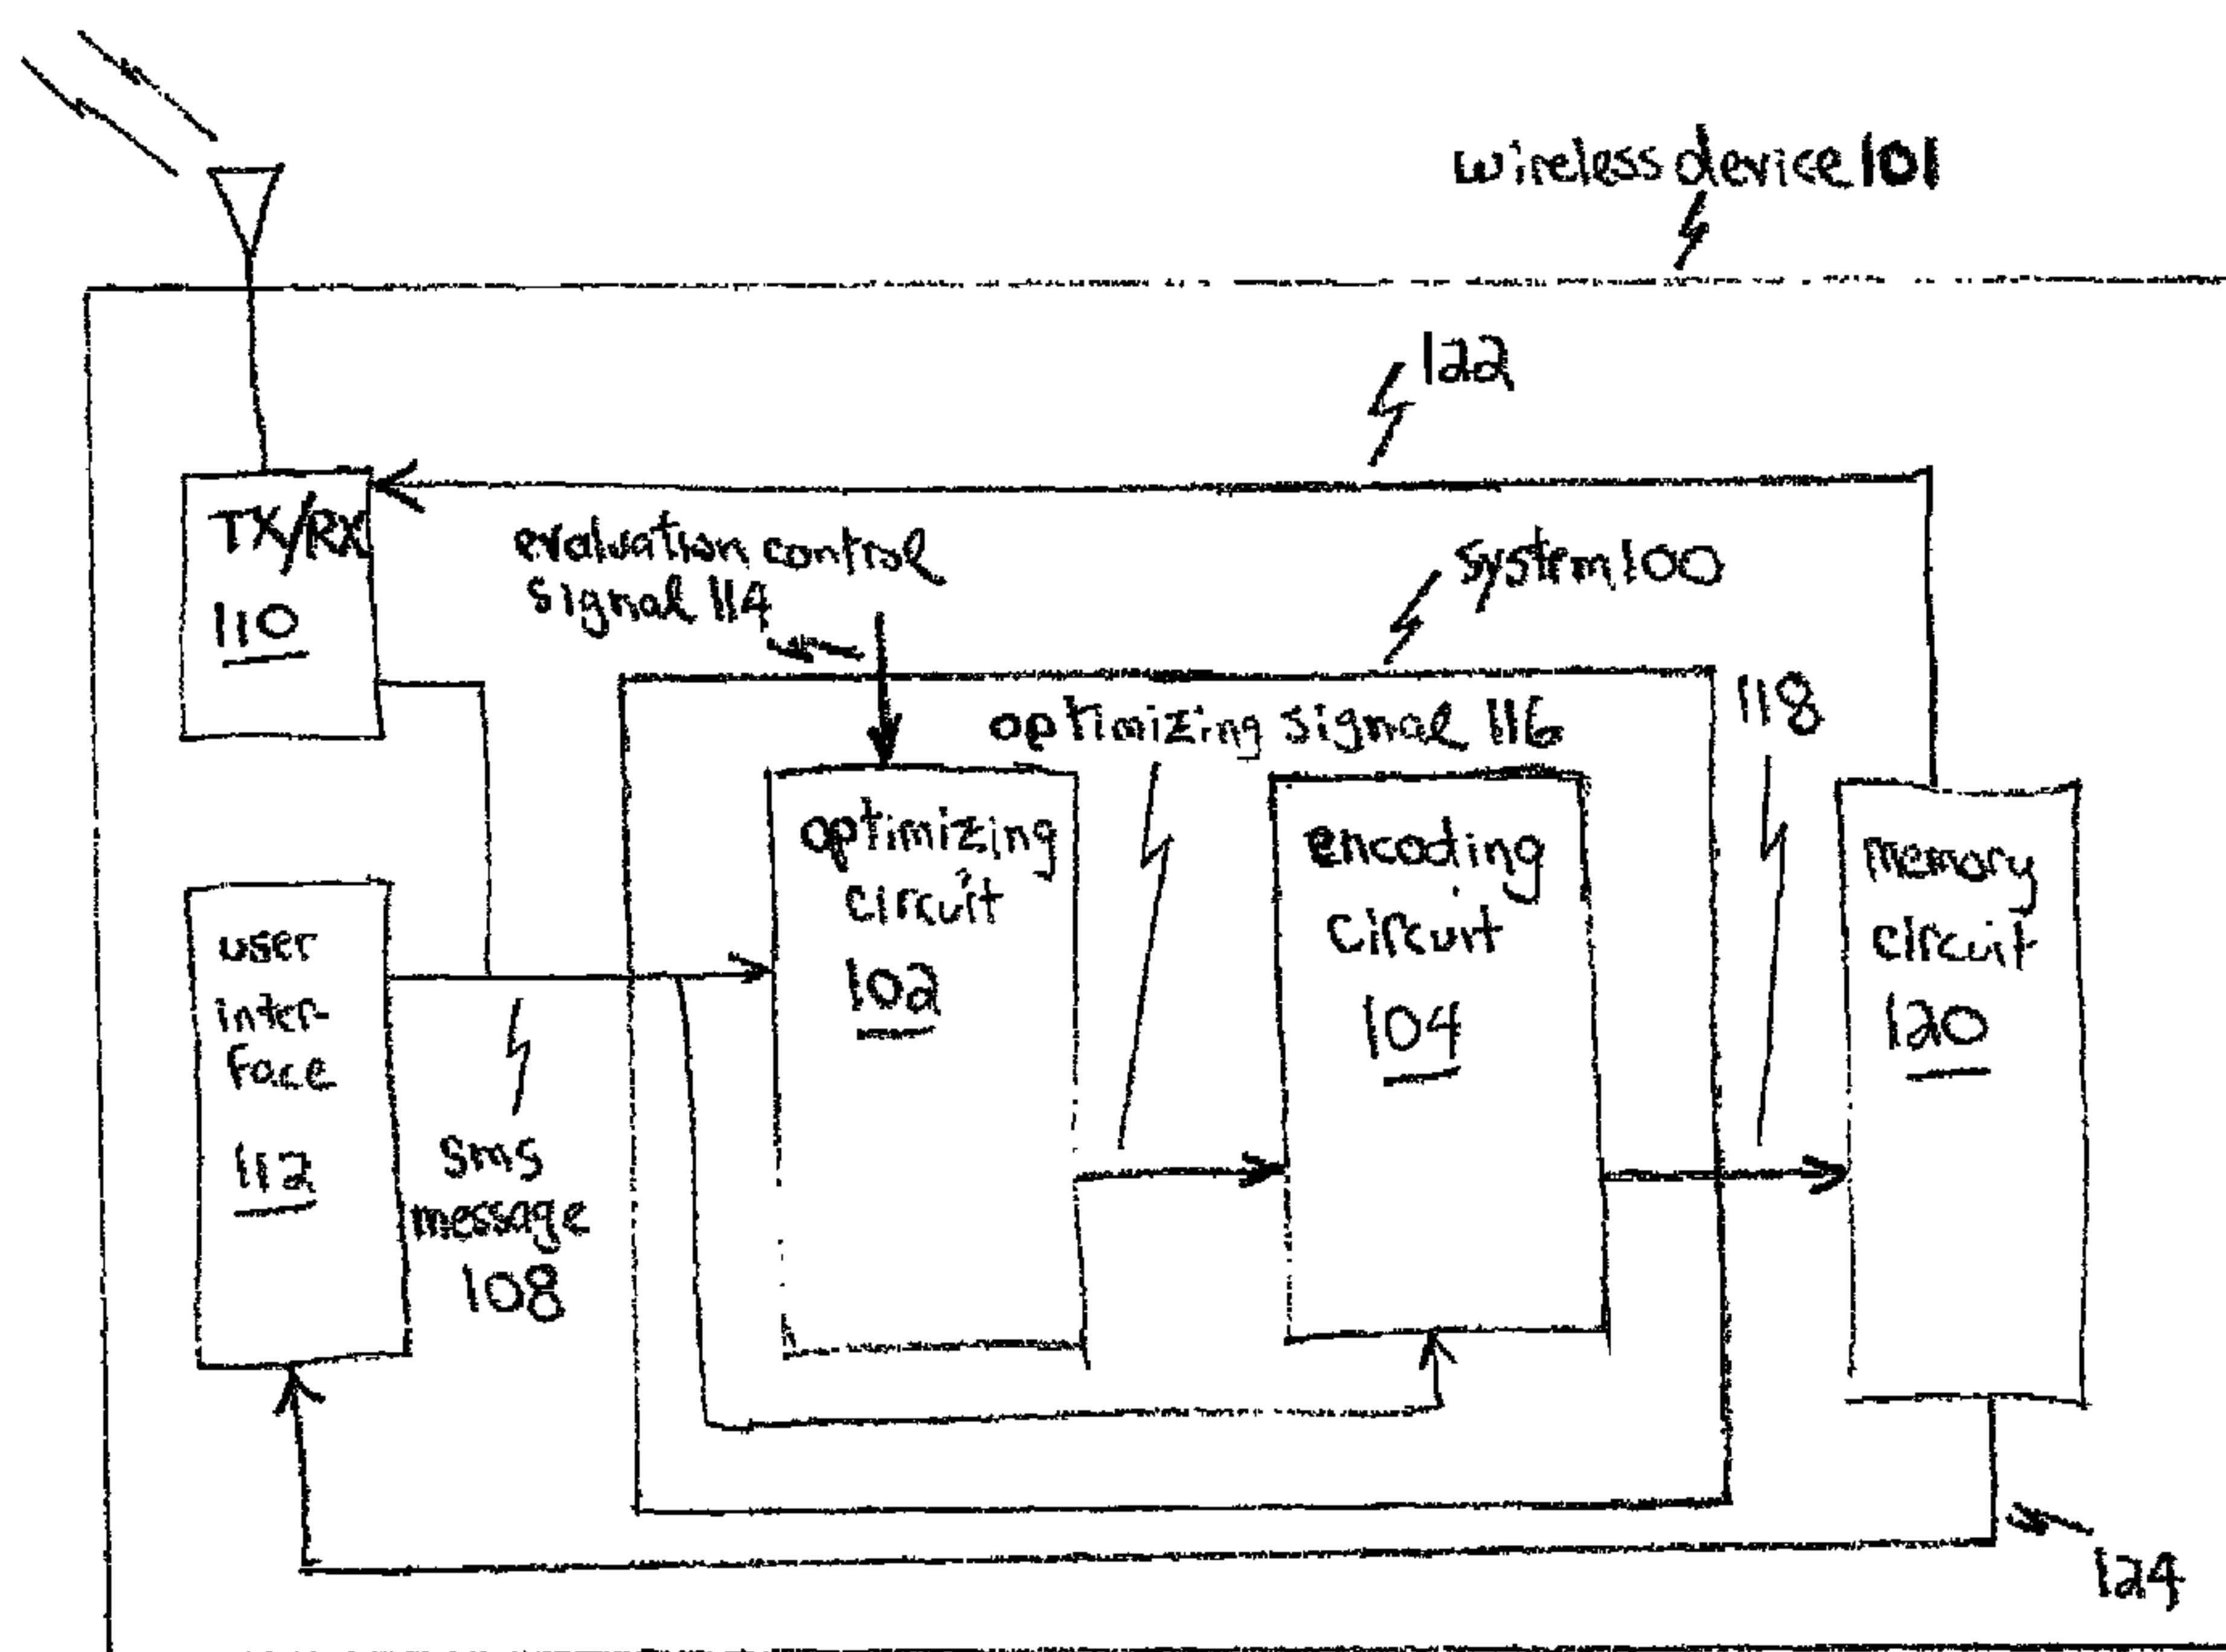 wireless device 101
122
TX/RX
110
evaluation control
signal 114
system 100
optimizing signal 116
118
optimizing
circuit
102
encoding
circuit
104
memory
circuit
120
user
inter-
face
112
sms
message
108
124